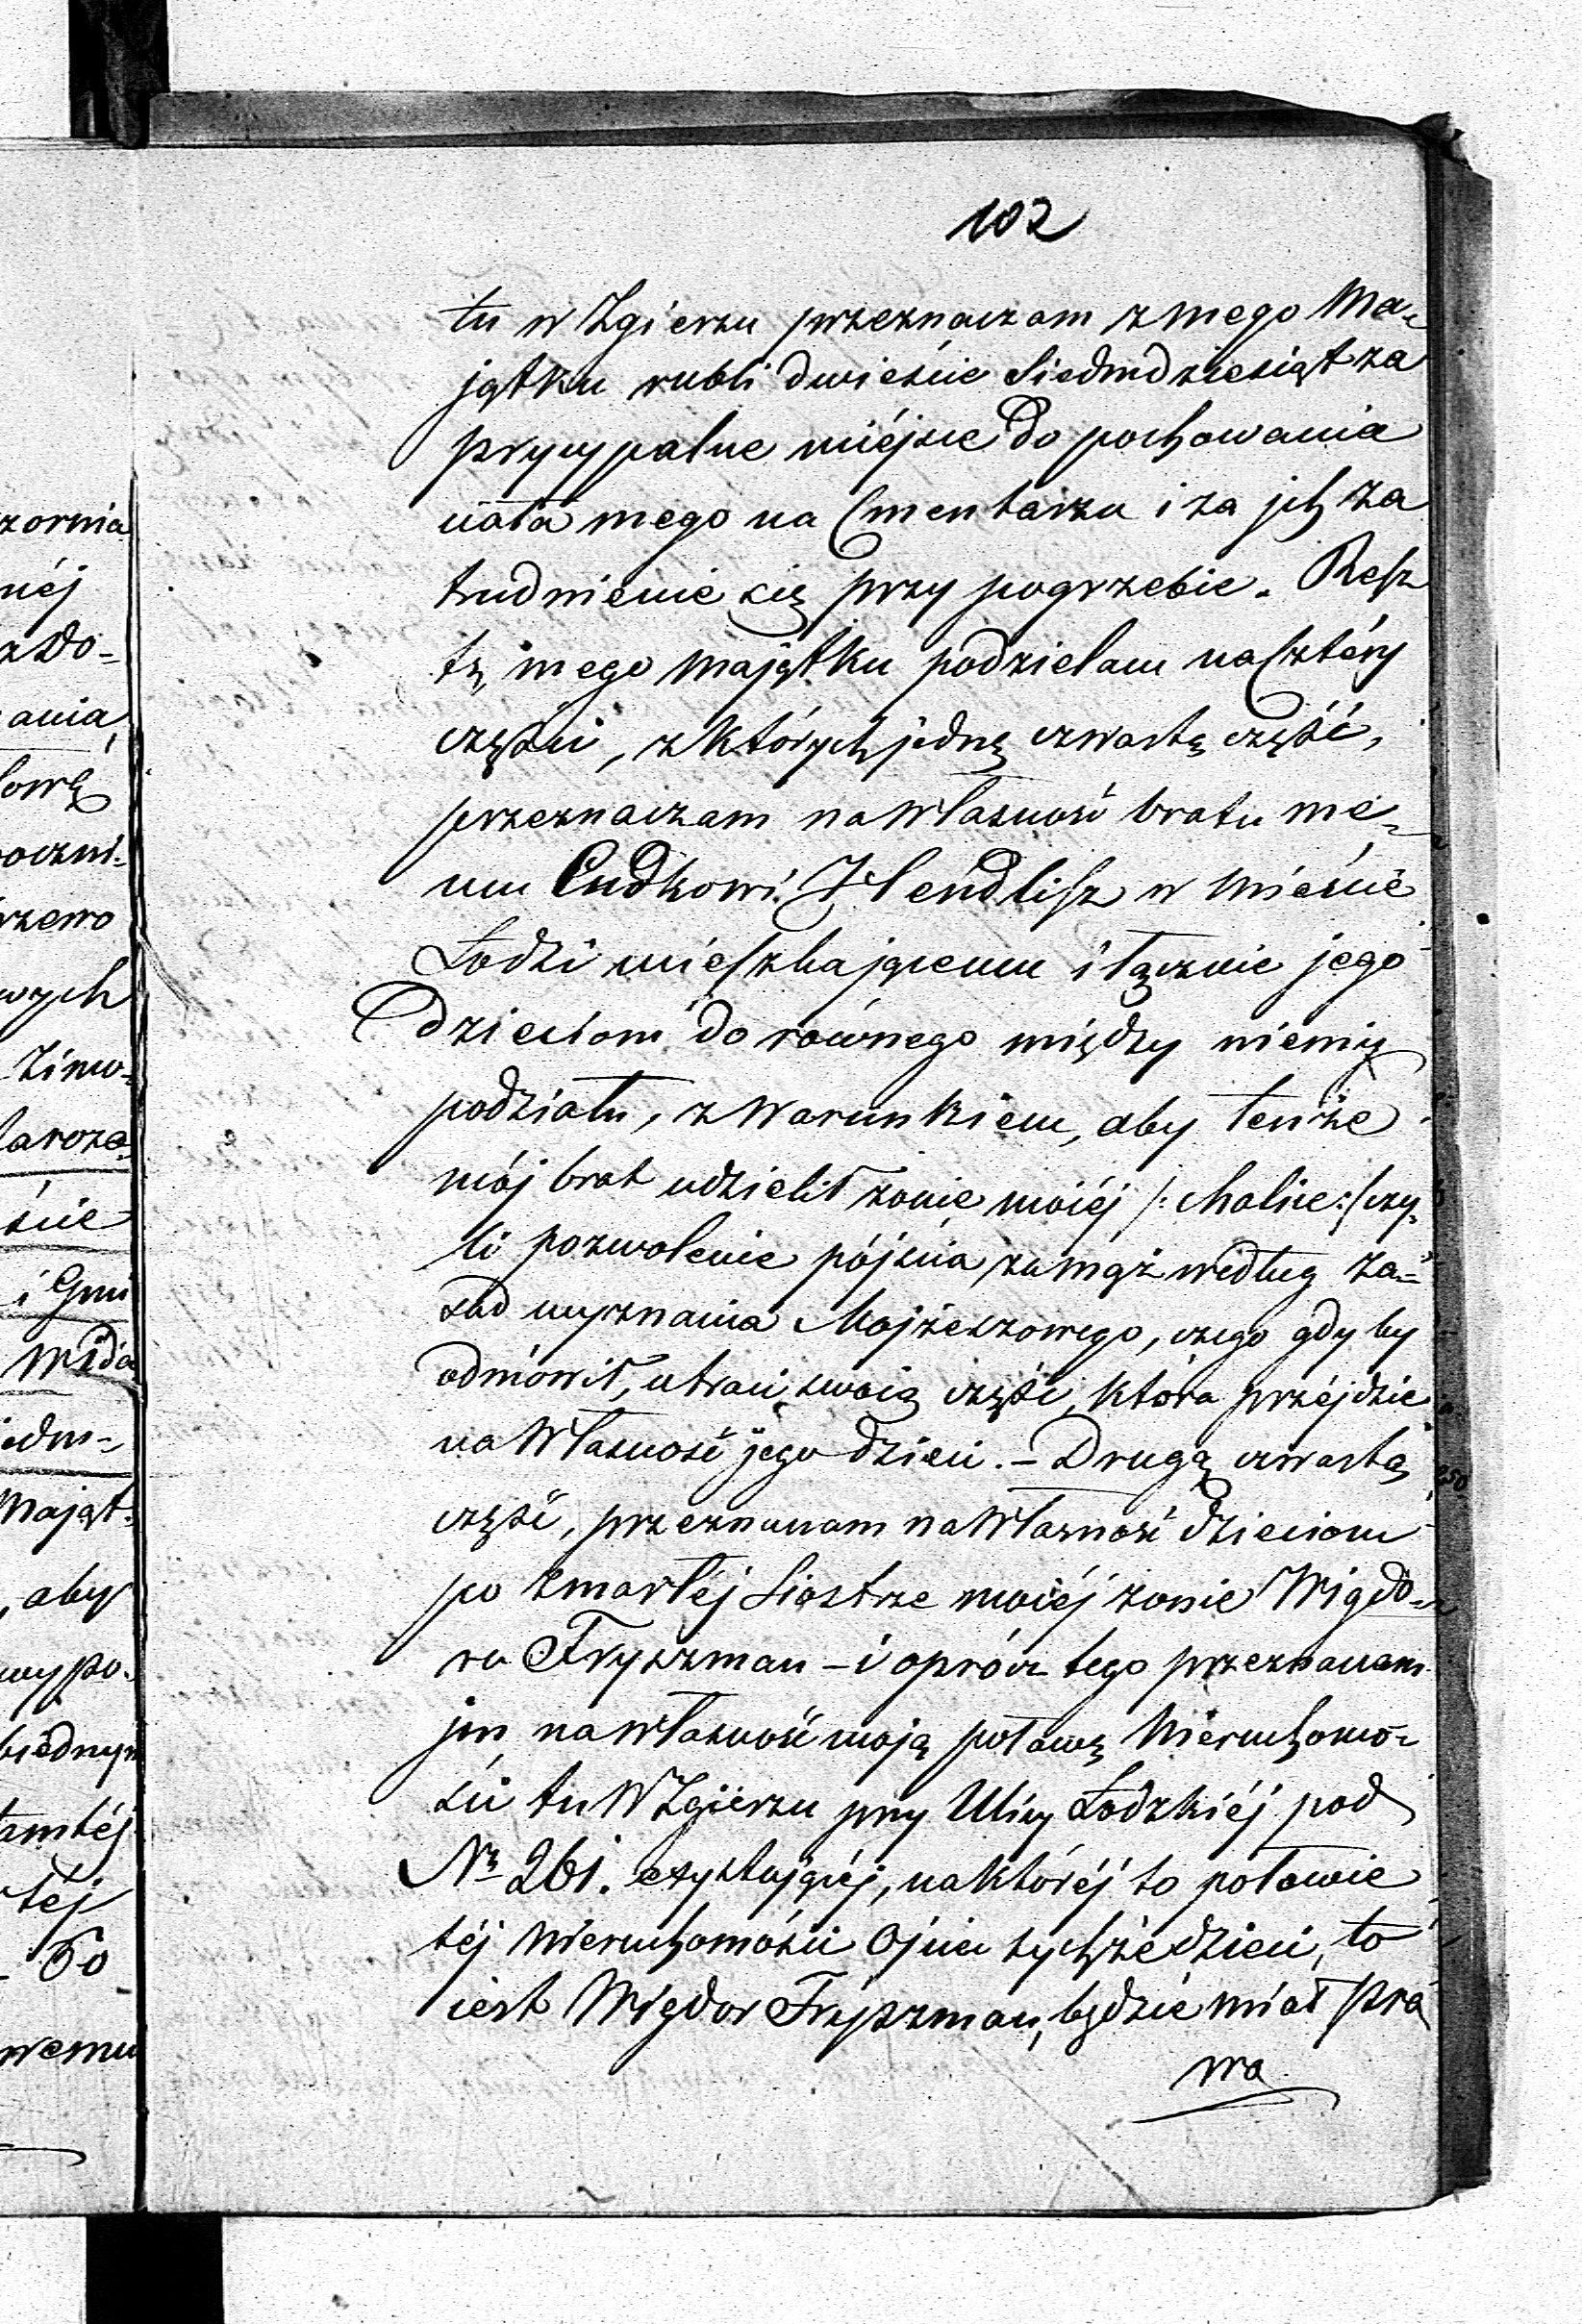 102
tu w Zgierzu przeznaczam z mego Ma-
jątku rubli dwieście Siedmdziesiąt za
prycypalne miéjsce do pochowania
ciała mego na Cmentarzu i za jch za
trudnienie się przy pogrzebie. Resz
tę mego majątku podzielam na Cztéry
części, z których jedną czwartą część,
przeznaczam na własność bratu me-
mu Cudkowi Hendlisz w mieście
Łodzi mieszkającemu i łącznie jego
dzieciom do równego między niemi
podziału, z warunkiem, aby tenże
mój brat udzielił żonie moiéj /: Malie :/ czy-
li pozwolenie pójścia zamąż według za-
sad wyznania Mojżeszowego, czego gdyby
odmówił, utraci swoią część, która przéjdzie
na własność jego dzieci. – Drugą czwartą
część, przeznaczam na własność dzieciom
po zmarłéj Siostrze moiéj żonie Wigdo-
ra Fryszman – i oprócz tego przeznaczam
jm na własność moją połowę Nieruchomo-
ści tu w Zgierzu przy Ulicy Łodzkiéj pod
№ 261. exystującéj, na któréj to połowie
téj nieruchomości Ojciec tychże dzieci, to
iest Wigdor Fryszman, będzie miał pra
wa
zornia
néj
Do-
ania
wych
śnie
i Gmi
Mająt-
, aby
wypo-
biednym
téj
60
wemu